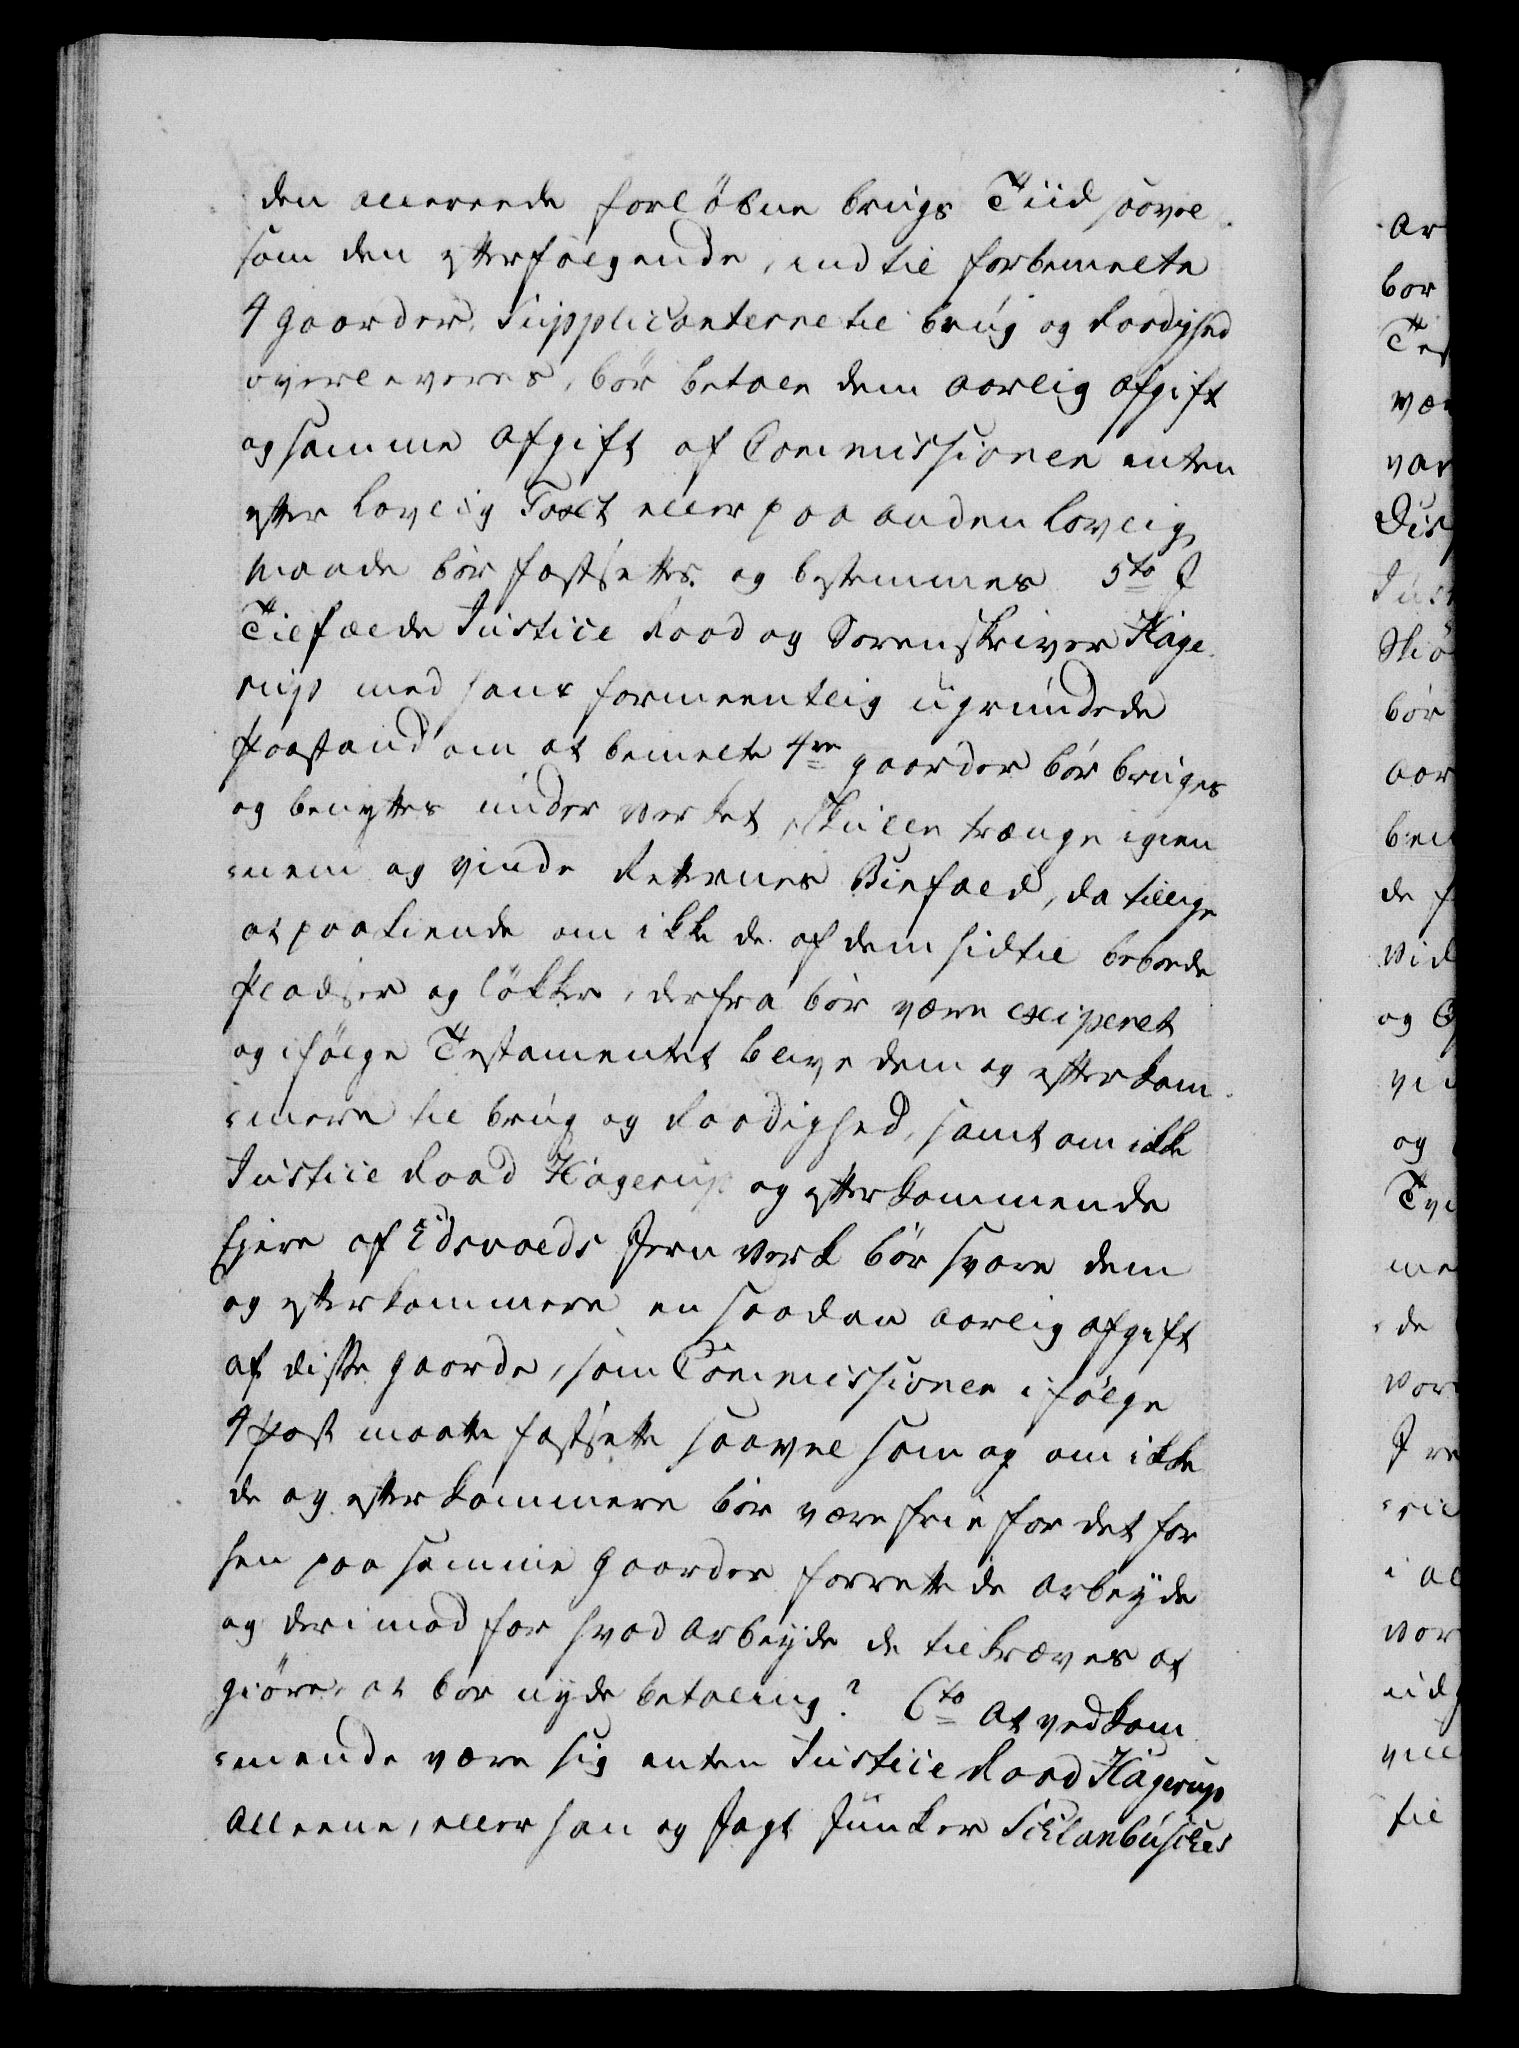 den allereede forløbne brugs Tiid saavel
som den efterfølgende, indtil forbemelte
4 gaarder, Supplicanterne til brúg og Raadighed
overleveres, bør betale dem aarlig afgift
og samme afgift af Commissionen enten
efter lovlig Taxt eller paa anden lovlig
Maade bør fastsettes og bestemmes 5to I
Tilfælde Justice Raad og Sorenskriver Hage
rup med hans formeentlig ugrundede
Paastand om at bemelte 4re gaarder bør bruges
og benyttes under Verket, skulle trænge igien
=nem og vinde Retternes Biefald, da tillige
at paakiende om ikke de af dem hidtil beboede
Pladser og Løkker, derfra bør være exiperet
og ifølge Testamentet blive dem og efterkom
=mere til brug og Raadighed, samt om ikke
Justice Raad Hagerup og efterkommende
Ejere af Edsvolds Jern Verk bør svare dem
og efterkommere en saadan aarlig afgift
af disse gaarde, som Commissionen ifølge
4 Post maatte fastsette saavel som og om ikke
de og efterkommere bør være frie for det for
hen paa samme Gaarder forrettede Arbeyde
og derimod for hvad Arbeyde de tilkræves at
giøre, at bør nyde betaling? 6to At vedkom
=mende være sig enten Justice Raad Hagerup
alleene, eller han og Jagt Junker Schlanbusches
Ar
bor
Tes
væ
var
Dis
bør
aar
de
og
og
me
=de
vor
i al
vor
til